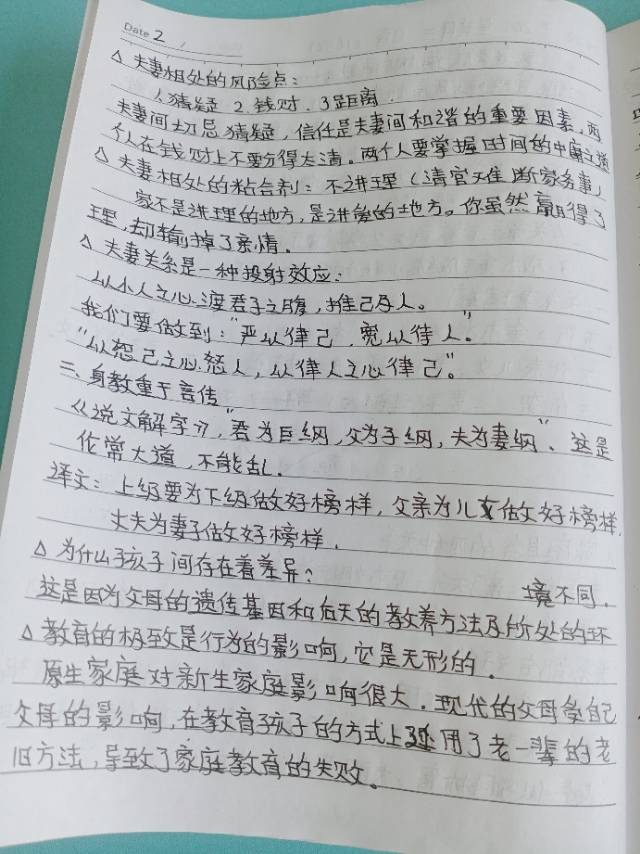 Date 2 /
△ 夫妻相处的风险点:
1 猜疑 2. 钱财. 3 距离.
夫妻间切忌猜疑, 信任是夫妻间和谐的重要因素, 两
个人在钱财上不要分得太清。两个人要掌握时间的中庸之道
△ 夫妻相处的粘合剂: 不讲理 (清官难断家务事)
家不是讲理的地方, 是讲爱的地方。你虽然赢得了
理, 却输掉了亲情.
△ 夫妻关系是一种投射效应:
以小人之心渡君子之腹, 推己及人。
我们要做到: "严以律己, 宽以待人."
"以恕己之心恕人, 以律人之心律己"。
二、身教重于言传
《说文解字》, "君为臣纲, 父为子纲, 夫为妻纲"、这是
伦常大道, 不能乱.
译文: 上级要为下级做好榜样, 父亲为儿女做好榜样,
丈夫为妻子做好榜样.
△ 为什么孩子间存在着差异?
这是因为父母的遗传基因和后天的教养方法及所处的环
境不同.
△ 教育的极致是行为的影响, 它是无形的.
原生家庭对新生家庭影响很大. 现代的父母受自己
父母的影响, 在教育孩子的方式上延用了老一辈的老
旧方法, 导致了家庭教育的失败。